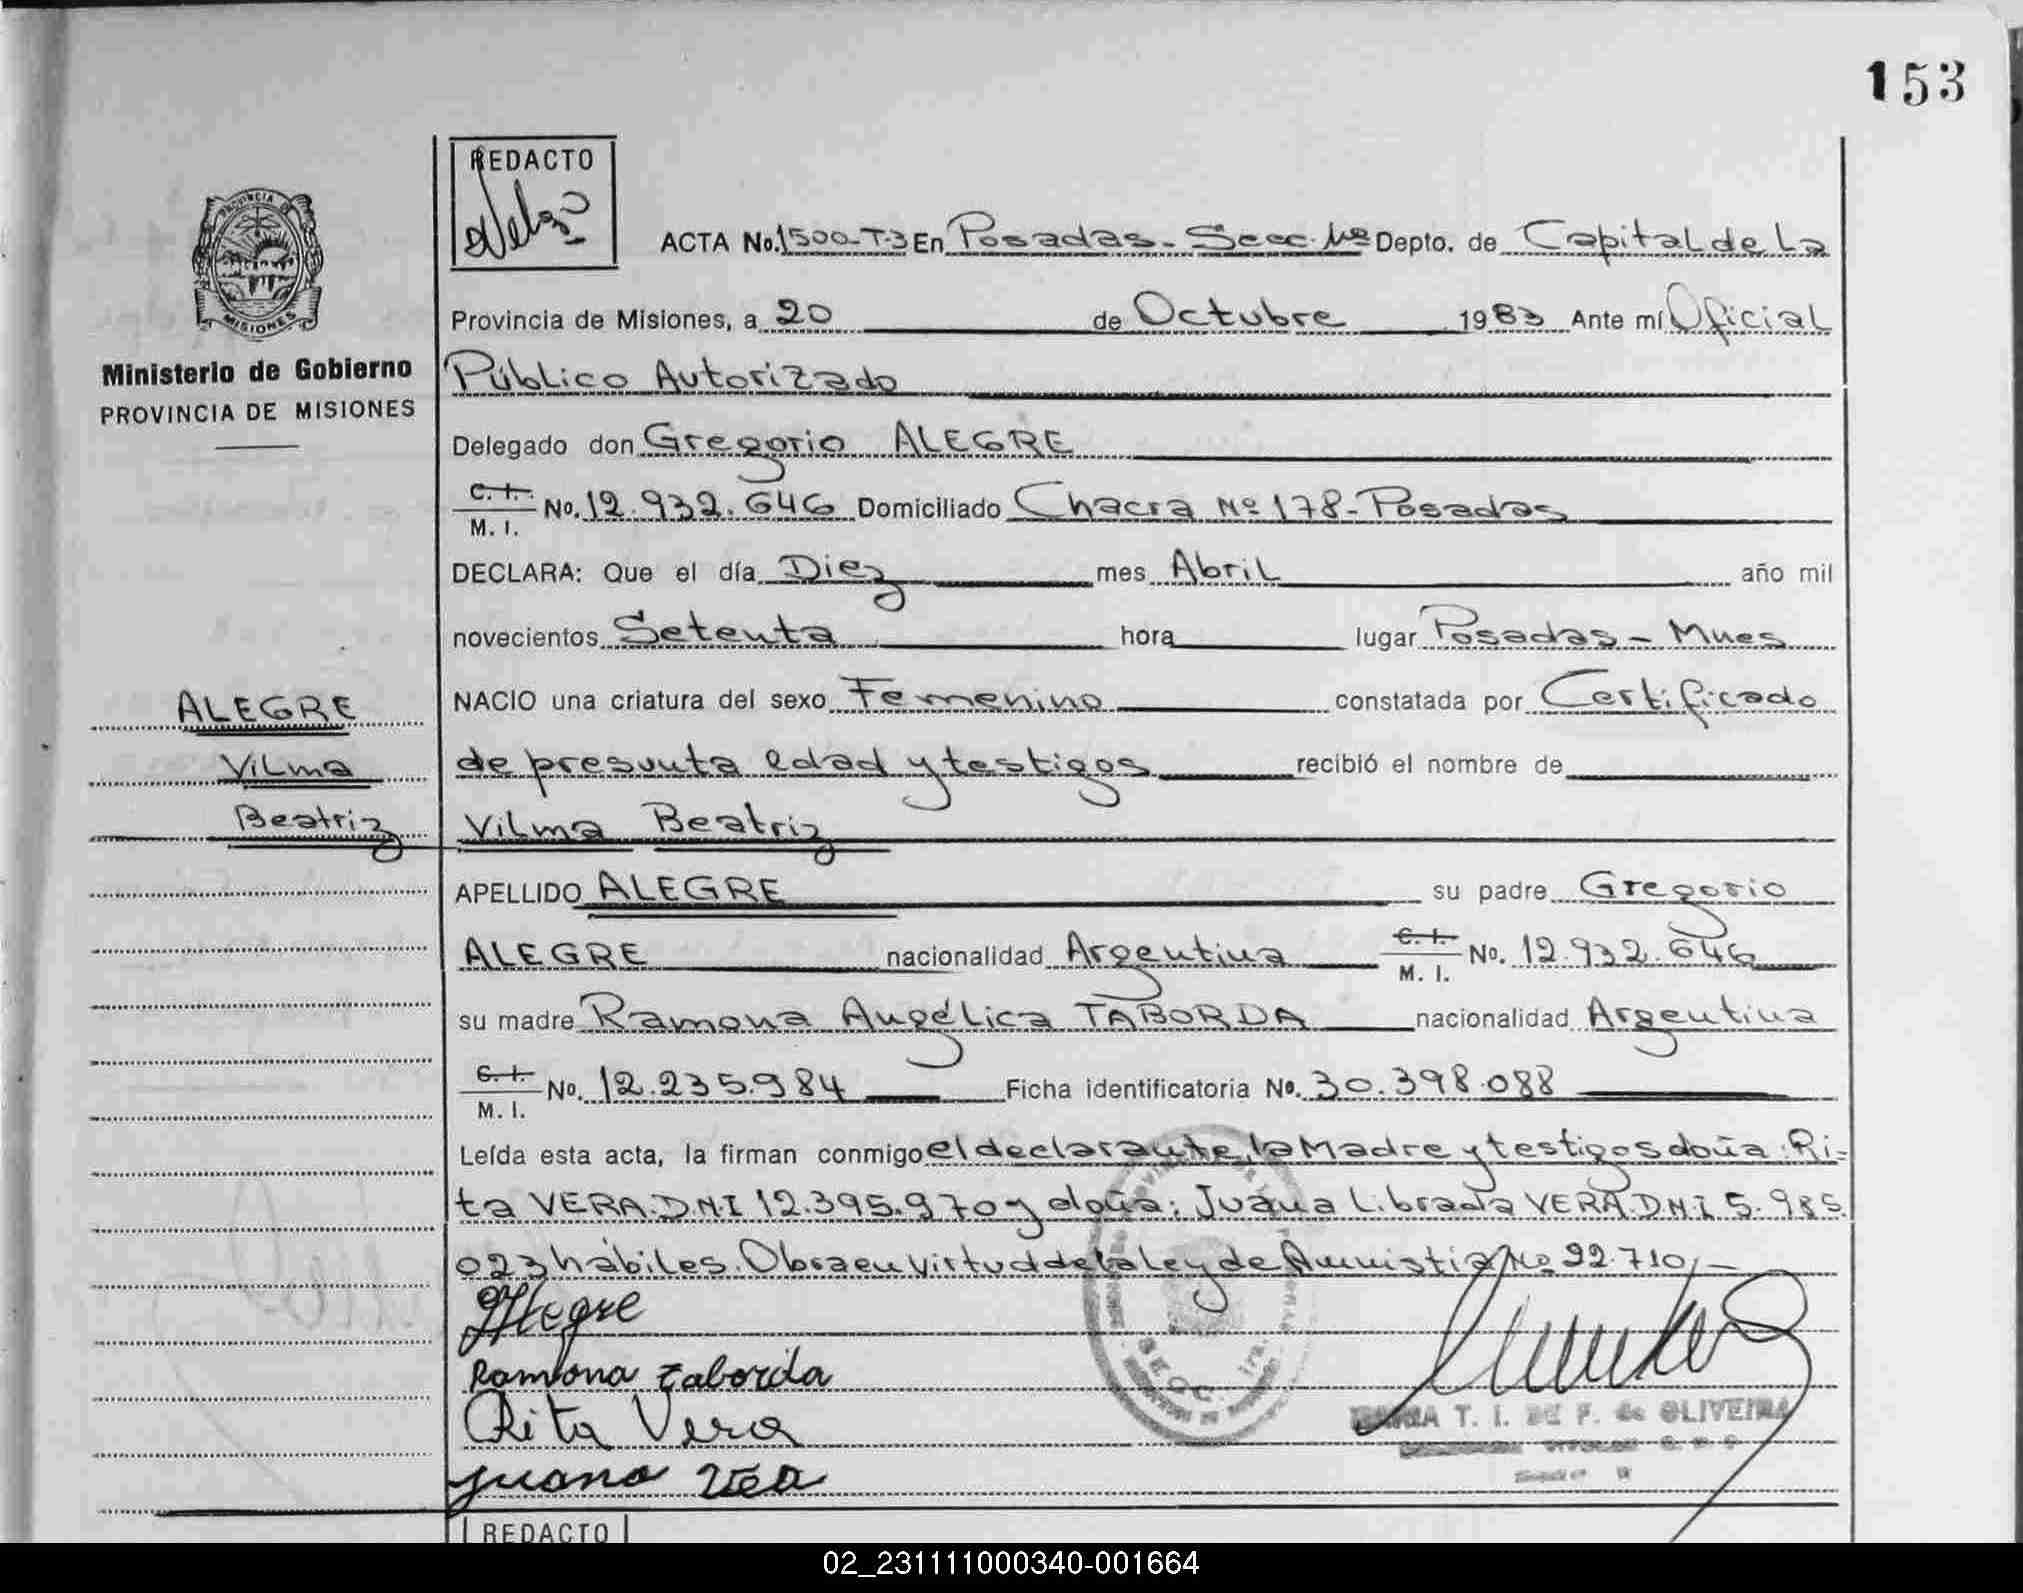 153
REDACTO
PROVINCIA DE
MISIONES
Ministerio de Gobierno
PROVINCIA DE MISIONES
ACTA No. 1500-T-3 En Posadas - Secc. Depto. de Capital de La
Provincia de Misiones, a 20 de Octubre 1983 Ante mí Oficial
Público Autorizado
Delegado don Gregorio ALEGRE
C. I. M. I. No. 12.932.646 Domiciliado Chacra Nº 178 - Posadas
DECLARA: Que el día Diez mes Abril año mil
novecientos Setenta hora lugar Posadas - Mnes
ALEGRE
Vilma
Beatriz
NACIO una criatura del sexo Femenino constatada por Certificado
de presunta edad y testigos recibió el nombre de
Vilma Beatriz
APELLIDO ALEGRE su padre Gregorio
ALEGRE nacionalidad Argentina C. I. M. I. No. 12.932.646
su madre Ramona Angélica TABORDA nacionalidad Argentina
C. I. M. I. No. 12.235.984 Ficha identificatoria No. 30.398.088
Leída esta acta, la firman conmigo el declarante, la Madre y testigos doña: Ri-
ta VERA D.N.I 12.395.970 y doña: Juana Librada VERA D.N.I 5.985.
023 hábiles. Obra en virtud de la ley de Amnistía Nº 22.710.-
Alegre
Ramona taborda
Rita Vera
Juana
T. I. DE F. de OLIVEIRA
REDACTO
02_231111000340-001664